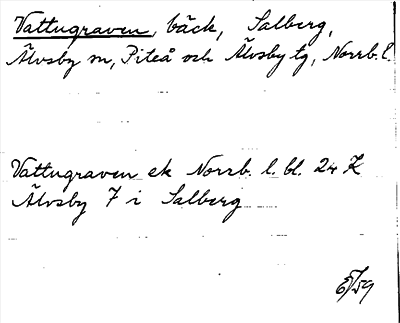 Vattugraven, bäck, Salberg,
Älvsby m, Piteå och Älvsby tg, Norrb. l.
Vattugraven ek Norrb. l. bl. 24 K
Älvsby 7 i Salberg